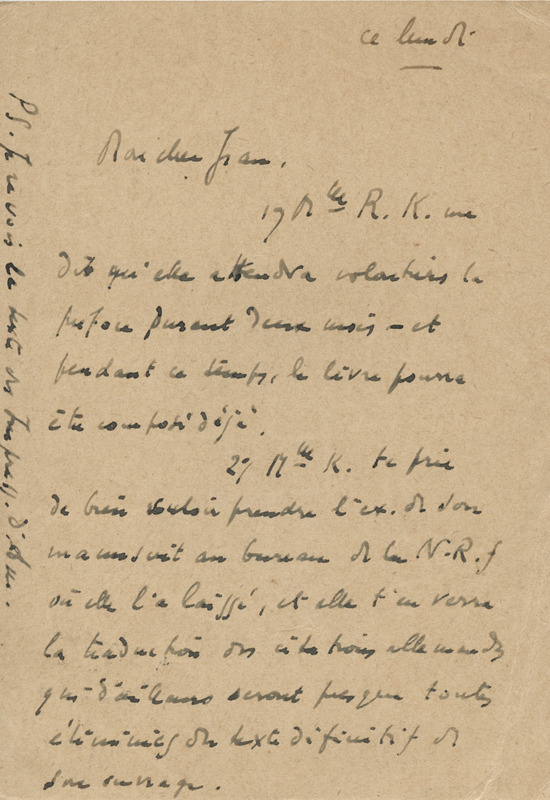 ce lundi
Mon cher Jean,
1) Mlle R. K. me
dit qu'elle attendra volontiers la
préface durant deux mois – et
pendant ce temps, le livre pourra
être composé déjà.
2) Mlle K. te prie
de bien vouloir prendre l'ex. de son
manuscrit au bureau de la N.R.f
où elle l'a laissé, et elle t'enverra
la traduction des citations allemandes
qui d'ailleurs seront presque toutes
éliminées du texte définitif de
son ouvrage.
PS. Je revois le texte des Impress. d'Am.